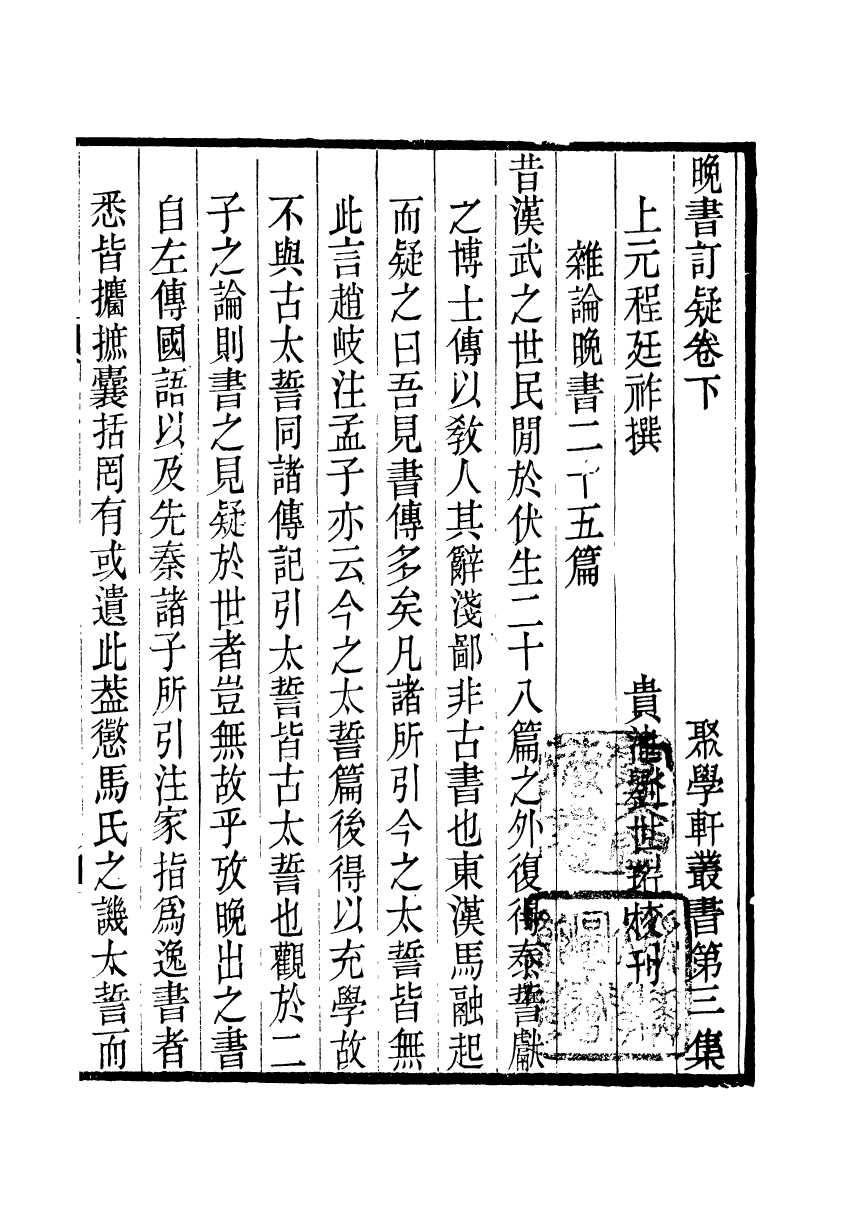 晚書訂疑卷下　聚學軒叢書第三集
上元程廷祚撰　貴池劉世珩校刊
雜論晚書二十五篇
昔漢武之世民閒於伏生二十八篇之外復得泰誓獻
之博士傳以敎人其辭淺鄙非古書也東漢馬融起
而疑之曰吾見書傳多矣凡諸所引今之太誓皆無
此言趙岐注孟子亦云今之太誓篇後得以充學故
不與古太誓同諸傳記引太誓皆古太誓也觀於二
子之論則書之見疑於世者豈無故乎攷晚出之書
自左傳國語以及先秦諸子所引注家指爲逸書者
悉皆攟摭囊括罔有或遺此葢懲馬氏之譏太誓而